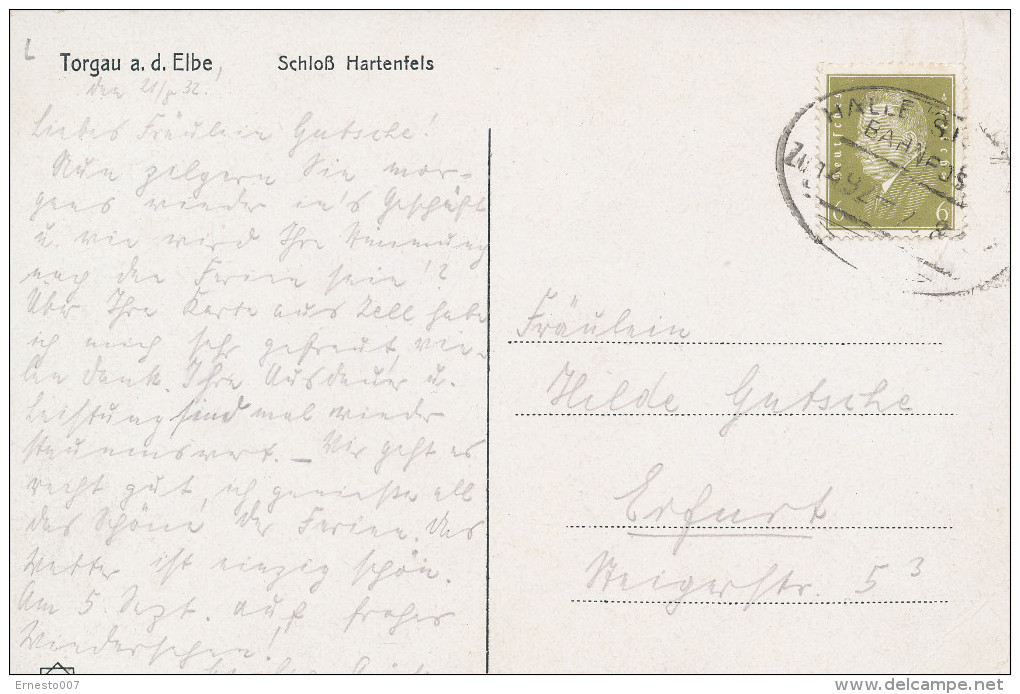 Torgau a. d. Elbe Schloß Hartenfels
den 21/8 32!
Liebes Fräulein Gutsche!
Nun Sie mor-
gens wieder in's Geschäft
u. wie wird Ihre Stimmung
nach den Ferien sein!?
Über Ihre Karte aus Zell habe
ich mich sehr gefreut, vie-
len Dank. Ihre Ausdauer u.
Leistung sind mal wieder
staunenswert. – Mir geht es
recht gut, ich genieße all
das Schöne der Ferien. Das
Wetter ist einzig schön.
Am 5. Sept. auf frohes
Wiedersehen!
HALLE
BAHNPOS
ZUG
Deutsches Reich
6 6
Fräulein
Hilde Gutsche
Erfurt
Steigerstr. 5 3
Ernesto007
delcampe.net